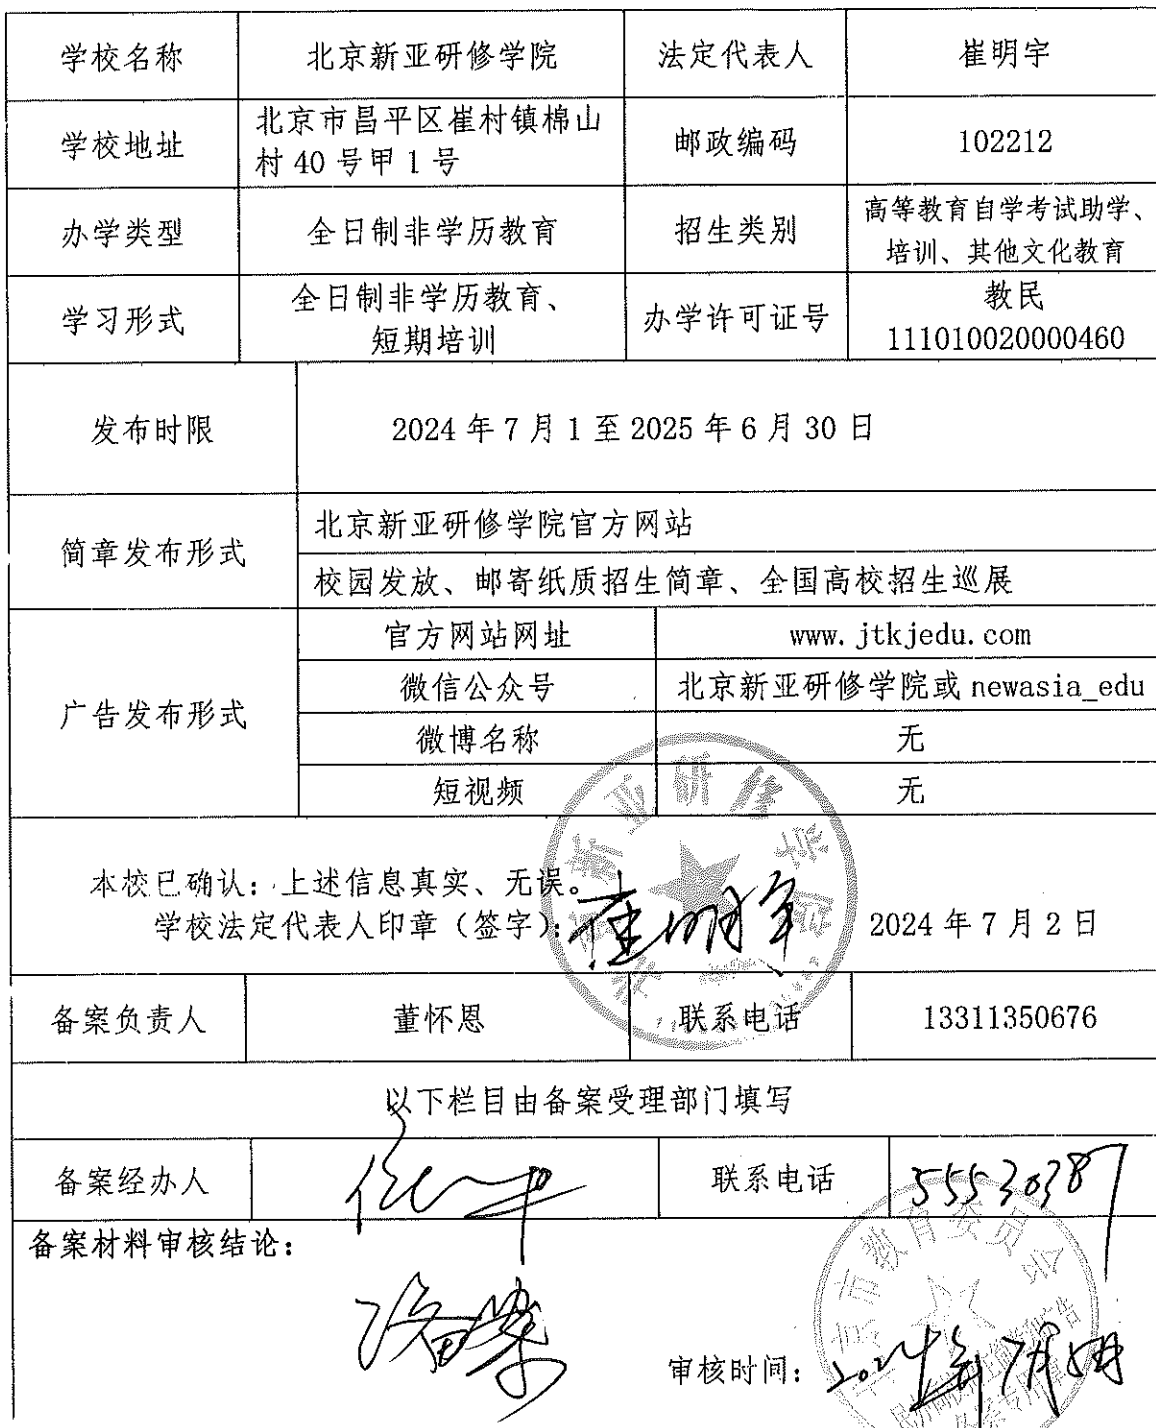 学校名称 北京新亚研修学院 法定代表人 崔明宇
学校地址 北京市昌平区崔村镇棉山
村 40 号甲 1 号 邮政编码 102212
办学类型 全日制非学历教育 招生类别 高等教育自学考试助学、
培训、其他文化教育
学习形式 全日制非学历教育、
短期培训 办学许可证号 教民
111010020000460
发布时限 2024 年 7 月 1 至 2025 年 6 月 30 日
简章发布形式 北京新亚研修学院官方网站
校园发放、邮寄纸质招生简章、全国高校招生巡展
广告发布形式 官方网站网址 www.jtkjedu.com
微信公众号 北京新亚研修学院或 newasia_edu
微博名称 无
短视频 无
本校已确认：上述信息真实、无误。
学校法定代表人印章（签字）： 崔明宇 2024 年 7 月 2 日
备案负责人 董怀恩 联系电话 13311350676
以下栏目由备案受理部门填写
备案经办人 联系电话 55530387
备案材料审核结论：
审核时间：